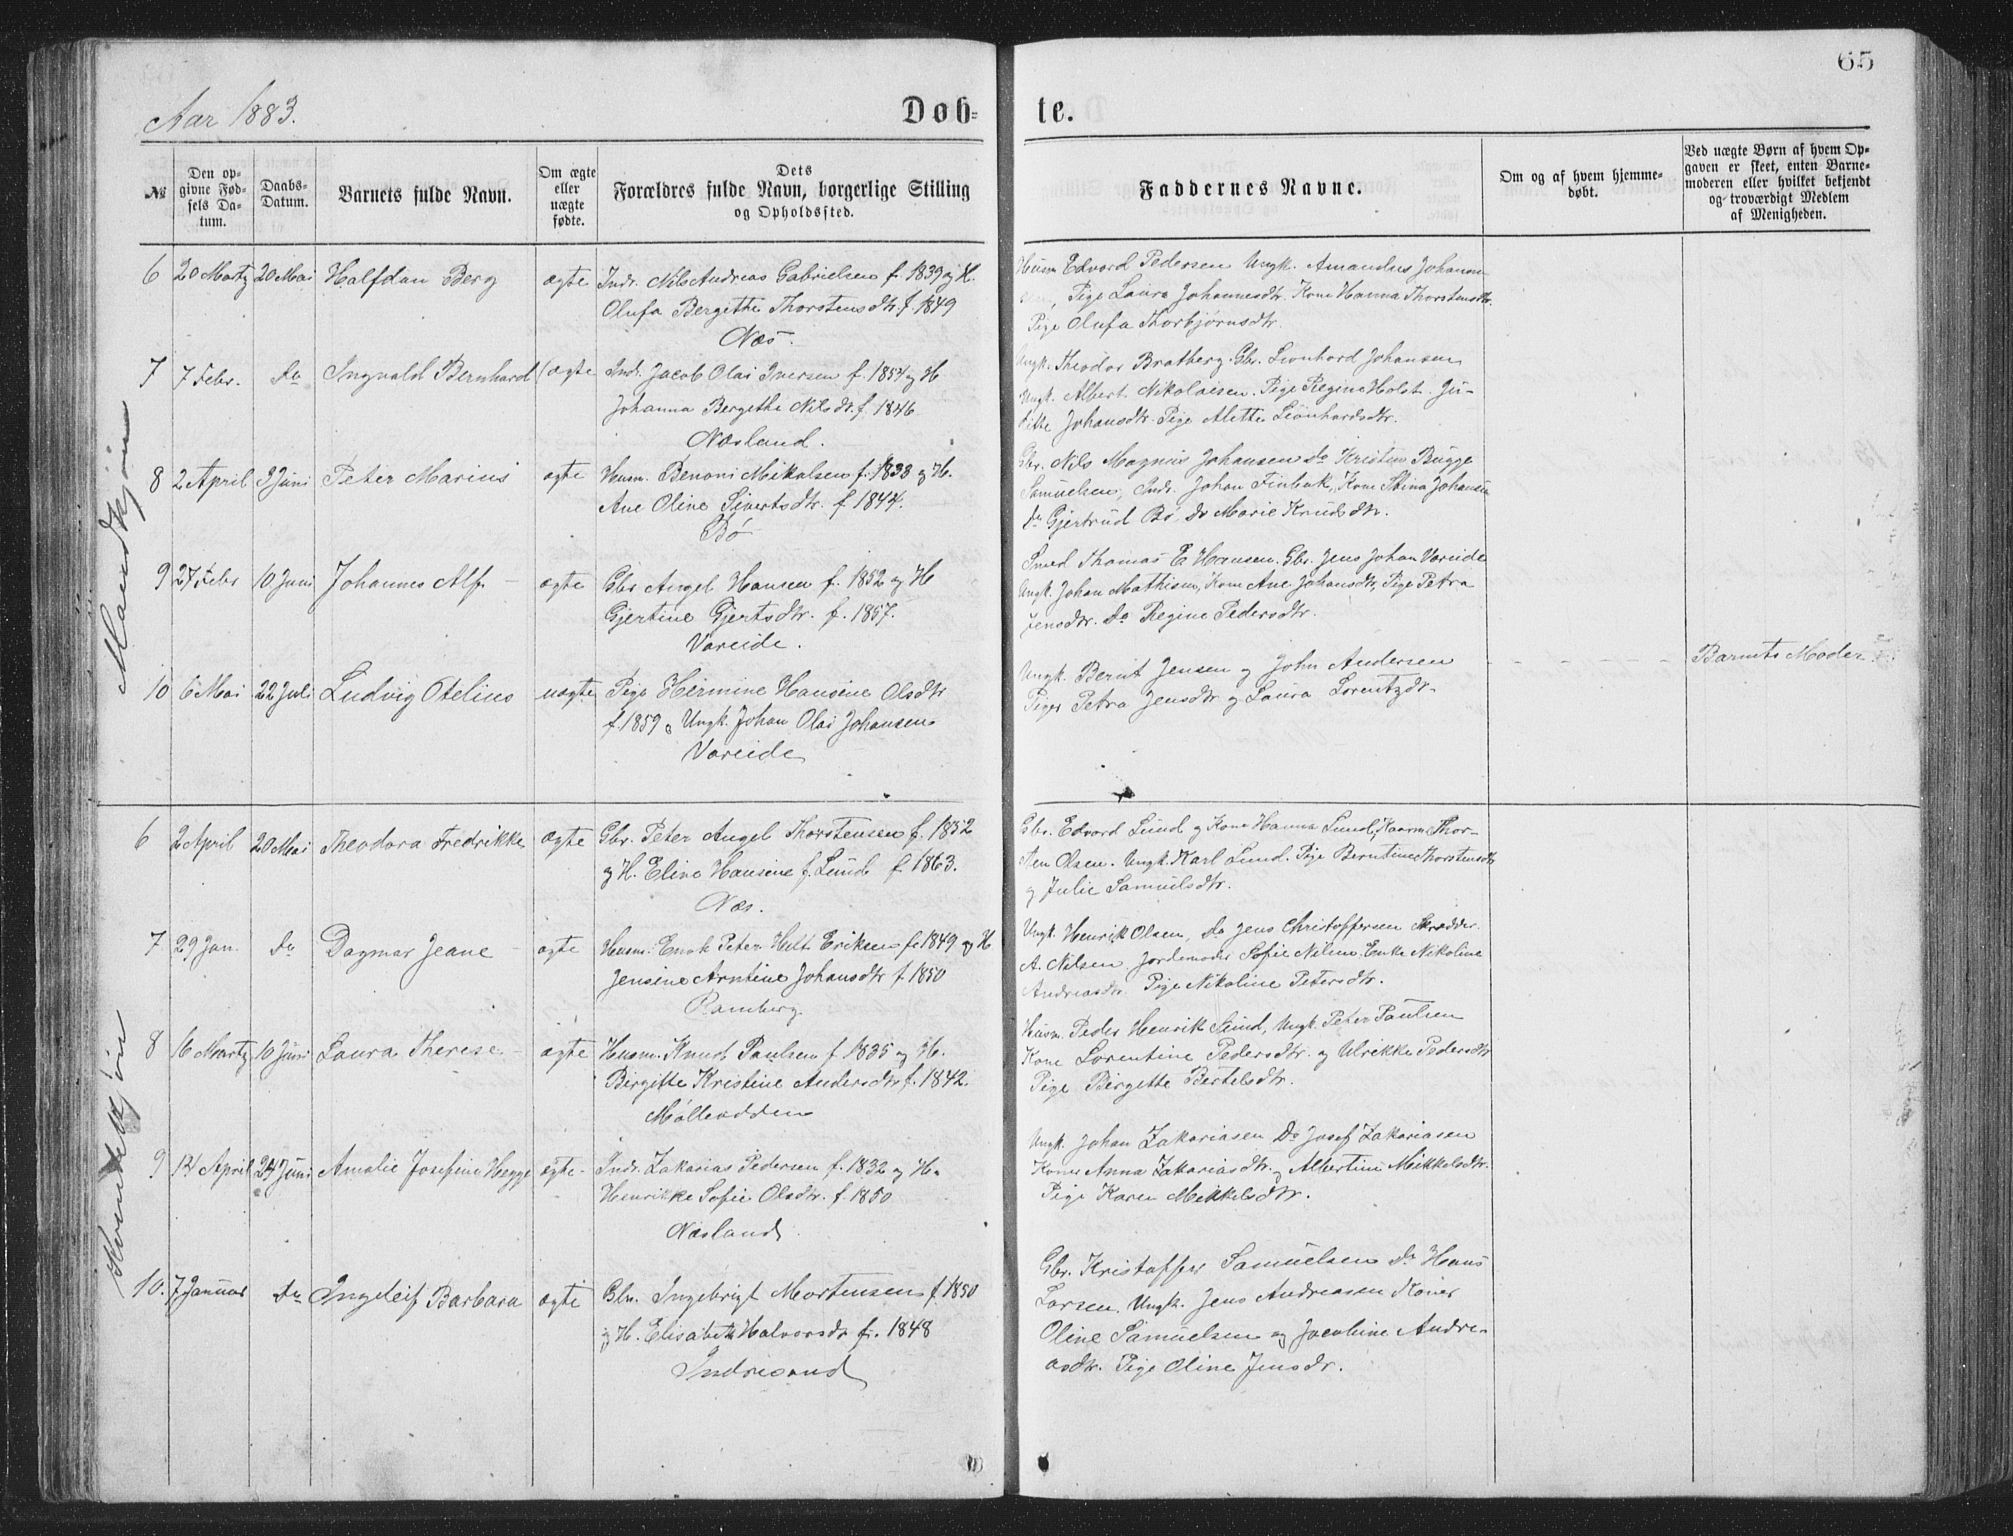 65
Aar 1883.
Døb-
te.
№
Den op-
givne Fød-
sels Da-
tum.
Daabs-
Datum.
Barnets fulde Navn.
Om ægte
eller
uægte
fødte.
Dets
Forældres fulde Navn, borgerlige Stilling
og Opholdssted.
Faddernes Navne.
Om og af hvem hjemme-
døbt.
Ved uægte Børn af hvem Op-
gaven er skeet, enten Barne-
moderen eller hvilket bekjendt
og troværdigt Medlem
af Menigheden.
Mandkjøn
6 20 Martz 20 Mai Halfdan Berg ægte Indr. Nils Andreas Gabrielsen f. 1839 og H.
Olufa Bergitha Thorstensdtr f. 1849
Næs.
Husm Edvard Pedersen Ungk. Amandus Johann
sen, Pige Laura Johannesdtr. Kone Hanna Thorstensdtr.
Pige Olufa Thorbjørnsdtr.
7 7 Febr. do Ingvald Bernhard ægte Indr. Jacob Olai Iversen f. 1854 og H
Johanna Bergethe Nilsdtr. f. 1846
Næsland.
Ungk. Theodor Bratberg. Gbr. Leonhard Johansen
Ungk. Albert Nikolaisen. Pige Regine Holst. Ju-
ditte Johansdtr. Pige Alette Leonhardsdtr.
8 2 April 3 Juni Peter Marius ægte Husm. Benoni Mikalsen f. 1838 og H.
Ane Oline Sivertsdtr. f. 1844.
Bø
Gbr. Nils Magnus Johansen do Kristen Bugge
Samuelsen, Indr. Johan Finbak, Kone Stina Johansen
do Gjertrud Bø do Marie Knudsdtr.
9 27 Febr 10 Juni Johannes Alf. ægte Gbr Angel Hansen f. 1852 og H
Gjertine Gjertsdtr. f. 1857.
Vareide.
Smed Thomas E Hansen. Gbr. Jens Johan Vareide
Ungk. Johan Mathisen, Kone Ane Johansdtr, Pige Petra
Jensdtr. do Regine Pedersdtr.
10 6 Mai 22 Juli Ludvig Otelius uægte Pige Hermine Hansine Olsdtr
f. 1859 & Ungk. Johan Olai Johansen
Vareide
Ungk. Bernt Jensen og John Andersen
Piger Petra Jensdtr og Laura Lorentzdr.
Barnets Moder
Kvindekjøn
6 2 April 20 Mai Theodora Fredrikke ægte Gbr. Peter Angel Thorstensen f. 1852
og H. Eline Hansine f. Lund f. 1863.
Næs.
Gbr. Edvard Lund og Kone Hanna Lund, Kaarm Thor-
sten Olsen. Ungk. Karl Lund. Pige Berntine Thorstensdtr
og Julie Samuelsdtr.
7 29 Jan. do Dagmar Jeane ægte Husm. Enok Peter Hilt Eriksen f. 1849 og H
Jensine Arntine Johansdtr f. 1850
Ramberg.
Ungk. Henrik Olsen, do Jens Christoffersen Skrædder
A. Nilsen Jordemoder Sofie Nilsen Enke Nikoline
Andreasdtr. Pige Nikoline Petersdtr.
8 16 Martz 10 Juni Laura Therese ægte Husm. Knud Paulsen f. 1835 og H.
Birgitte Kristine Andersdtr f. 1842.
Mølleodden
Husm. Peder Henrik Lund, Ungk. Peter Paulsen
Kone Lorentine Pedersdtr. og Ulrikke Pedersdtr
Pige Birgette Bertelsdtr.
9 14 April 24 Juni Amalie Josefine Hegge ægte Indr. Zakarias Pedersen f. 1832 og H.
Henrikke Sofie Olsdtr. f. 1850
Næsland
Ungk. Johan Zakariasen Do Josef Zakariasen
Kone Anna Zakariasdtr. og Albertine Mikkelsdtr.
Pige Karen Mikkelsdtr.
10. 7 Januar do Ingeleif Barbara ægte Gbr. Ingebrigt Mortensen f. 1850
og H. Elisabeth Halvorsdr f. 1848
Indresand
Gbr. Kristoffer Samuelsen do Hans
Larsen. Ungk. Jens Andreasen Koner
Oline Samuelsen og Jacobine Andre-
asdtr. Pige Oline Jensdr.